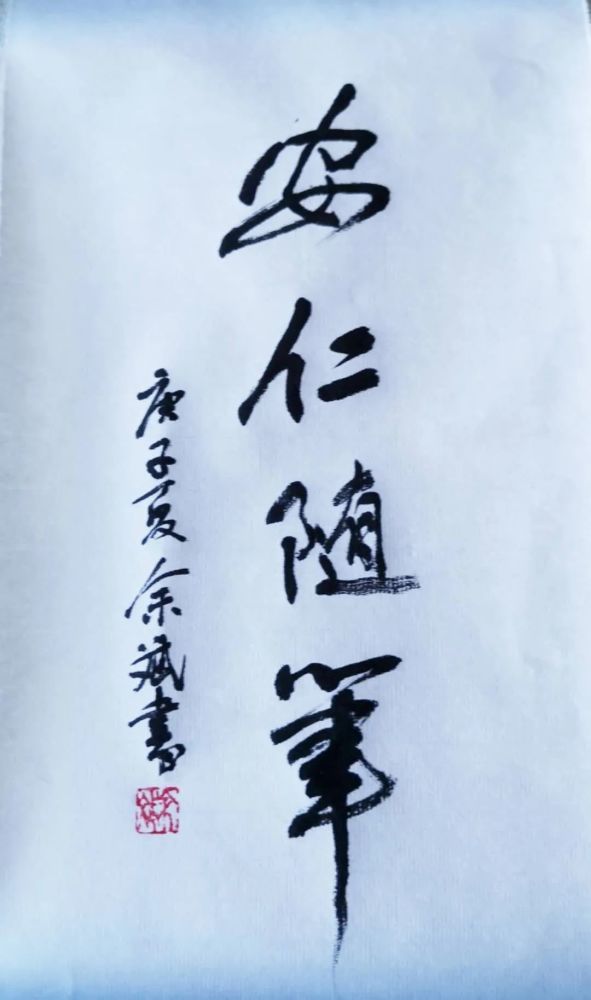 安仁随筆
庚子夏余斌書